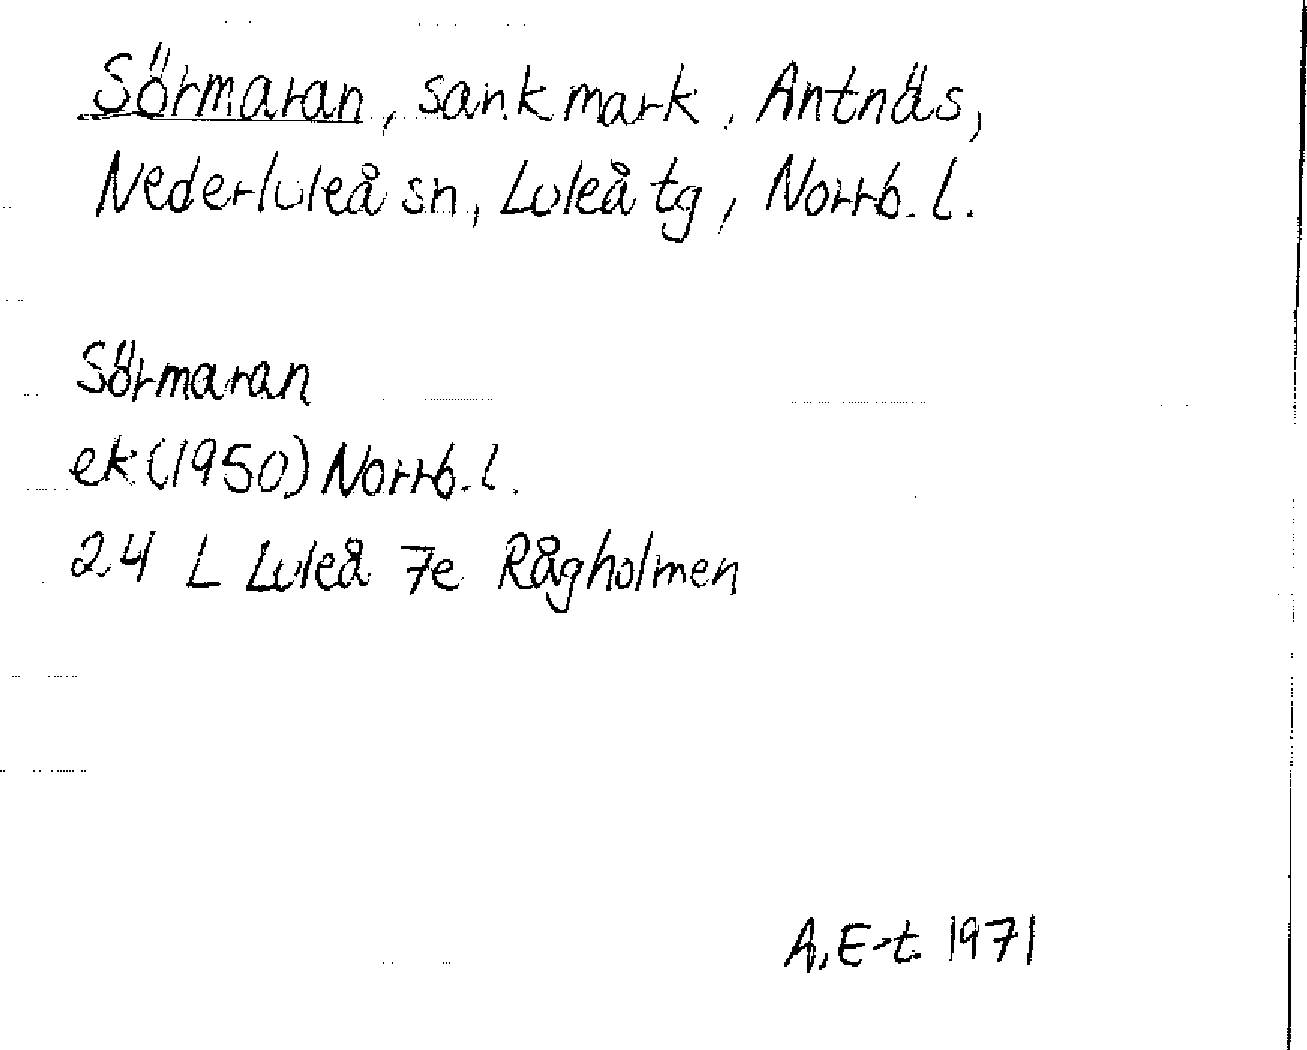 Sörmaran, sankmark, Antnäs,
Nederluleå sn, Luleå tg, Norrb. l.
Sörmaran
ek (1950) Norrb. l.
24 L Luleå 7e Rågholmen
A. E-t 1971